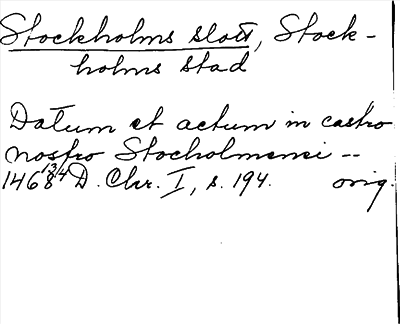 Stockholms slott, Stock-
holms stad
Datum et actum in castro
nostro Stocholmensi --
1468 13/4 D. Chr. I, s. 194. orig.